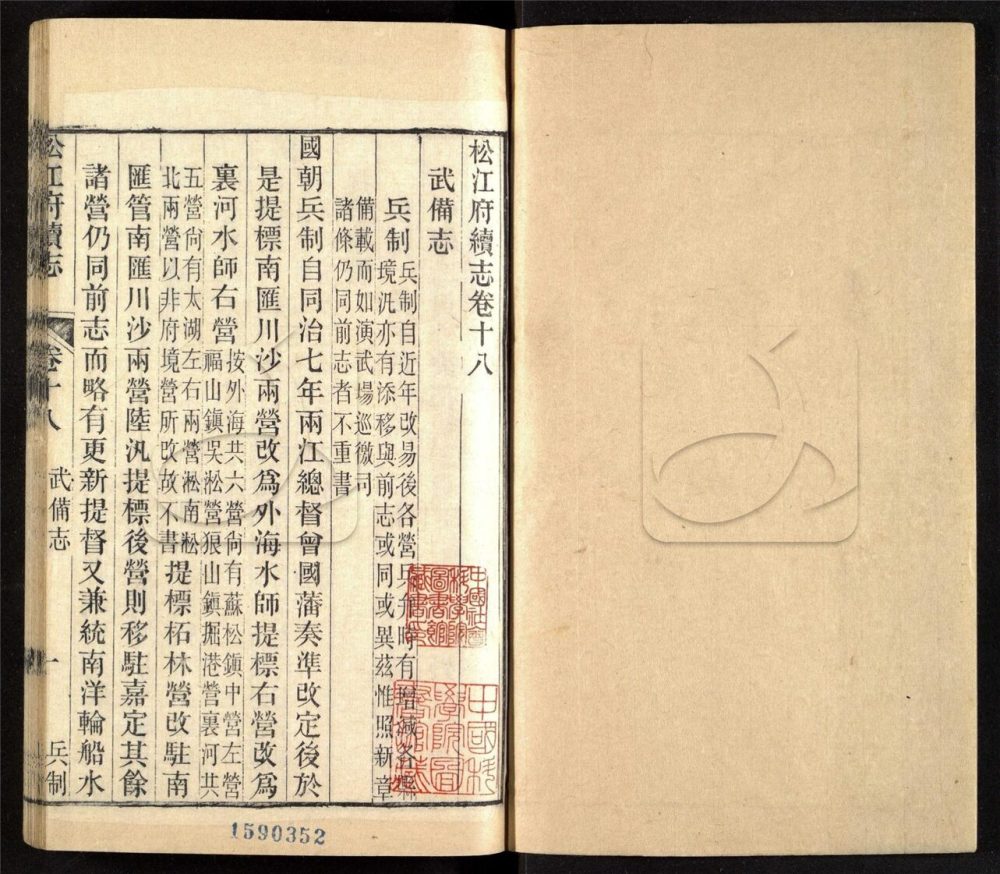 松江府續志卷十八
武備志
兵制
兵制自近年改易後各營兵弁時有增減各縣
境汛亦有添移與前志或同或異茲惟照新章
備載而如演武場巡微司
諸條仍同前志者不重書
國朝兵制自同治七年兩江總督曾國藩奏準改定後於
是提標南匯川沙兩營改爲外海水師提標右營改爲
裏河水師右營
按外海共六營尙有蘇松鎭中營左營
福山鎭吳淞營狼山鎭掘港營裏河共
五營尙有太湖左右兩營淞南淞
北兩營以非府境營所改故不書
提標柘林營改駐南
匯管南匯川沙兩營陸汛提標後營則移駐嘉定其餘
諸營仍同前志而略有更新提督又兼統南洋輪船水
松江府續志
卷十八
武備志
一
兵制
1590352